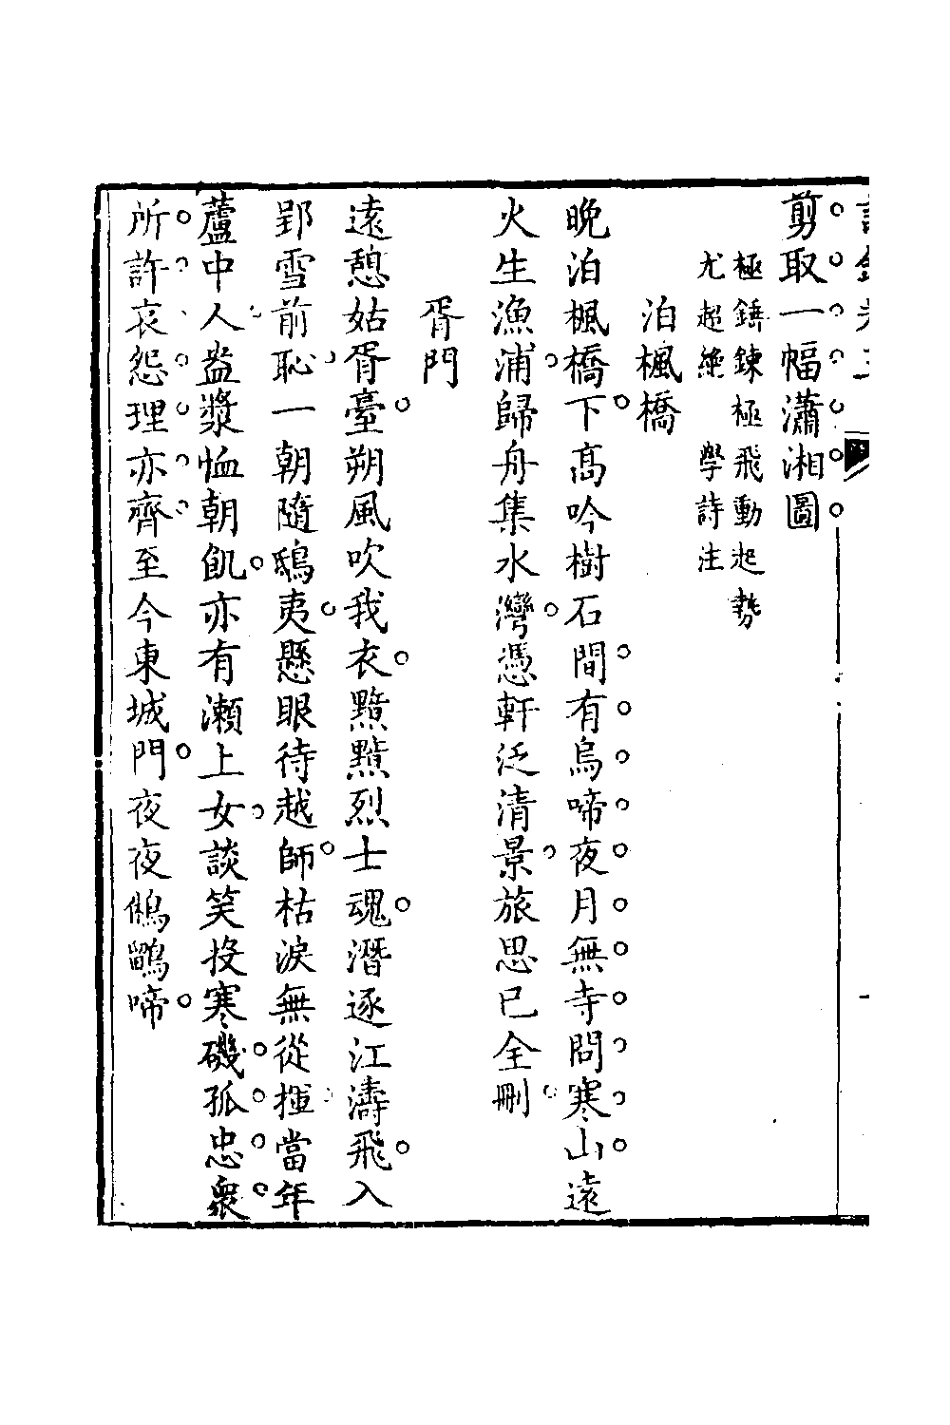 剪取一幅瀟湘圖
極錘鍊極飛動起勢
尤超絶 學詩注
泊楓橋
晚泊楓橋下高吟樹石間有烏啼夜月無寺問寒山遠
火生漁浦歸舟集水灣憑軒泛清景旅思已全刪
胥門
遠憩姑胥臺朔風吹我衣黯黯烈士魂潛逐江濤飛入
郢雪前恥一朝隨鴟夷懸眼待越師枯淚無從揮當年
蘆中人盎漿恤朝飢亦有瀨上女談笑投寒磯孤忠衆
所許哀怨理亦齊至今東城門夜夜鵂鶹啼